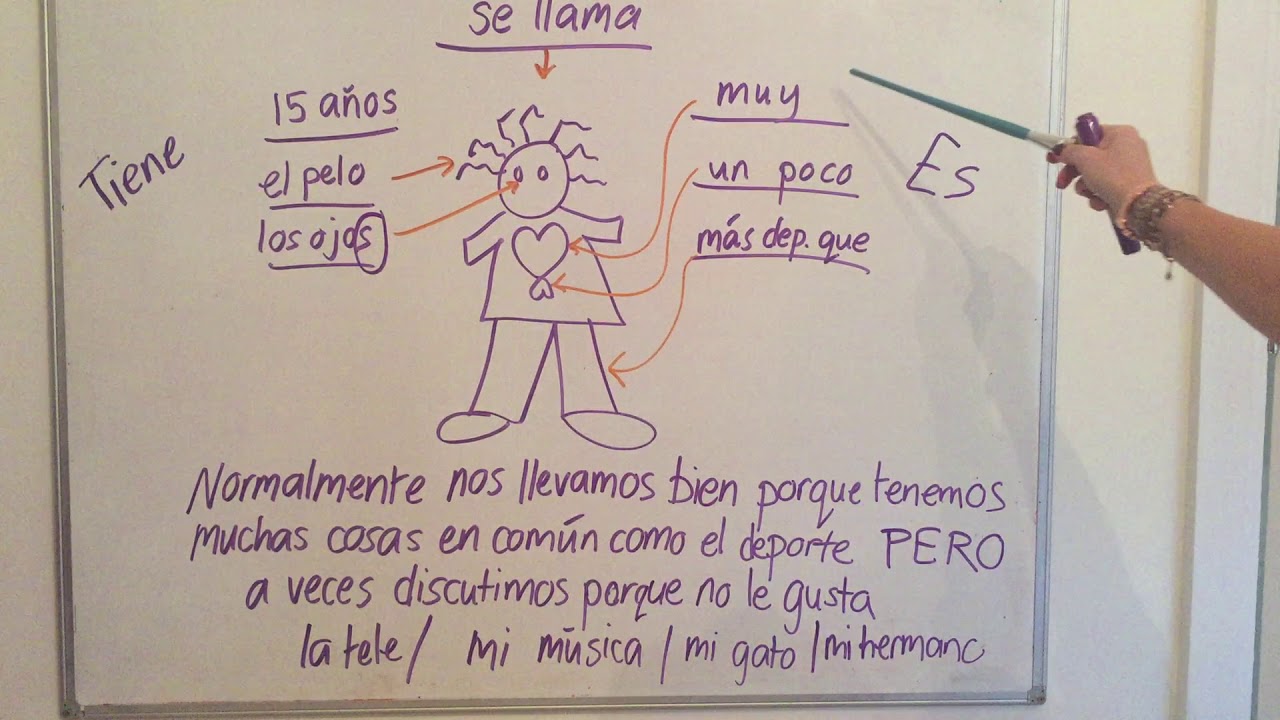 se llama
15 años
Tiene
el pelo
los ojos
muy
un poco
Es
más dep. que
Normalmente nos llevamos bien porque tenemos
muchas cosas en común como el deporte PERO
a veces discutimos porque no le gusta
la tele / mi música / mi gato / mi hermano